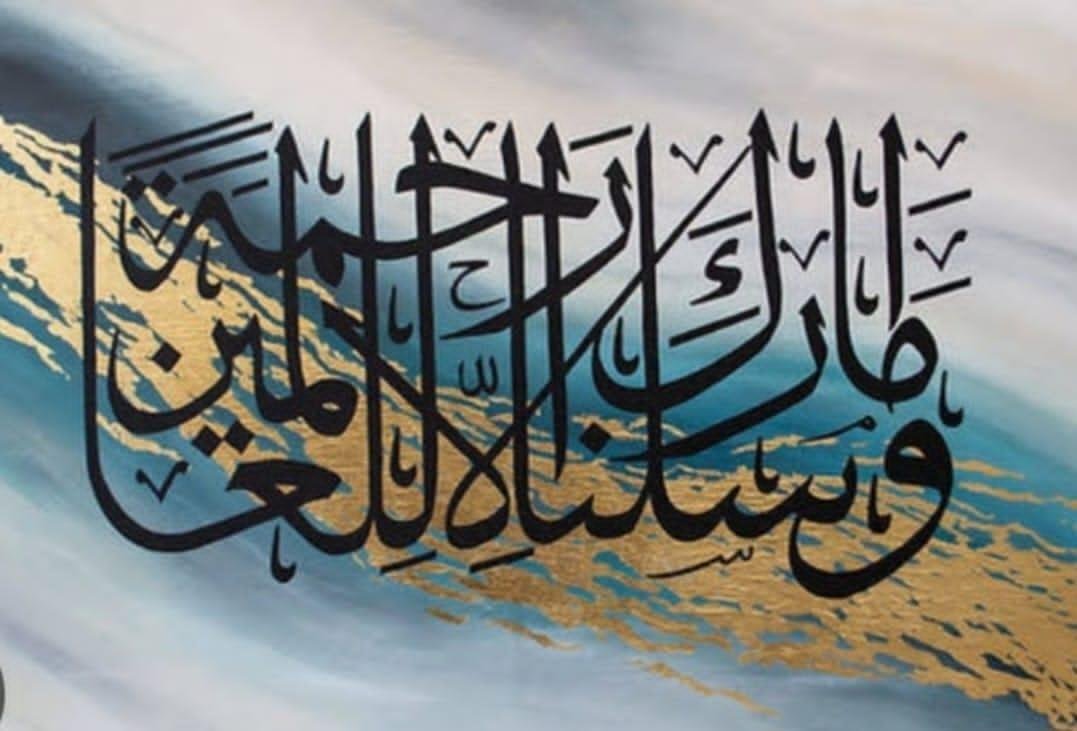 وَمَا أَرْسَلْنَاكَ إِلَّا رَحْمَةً لِلْعَالَمِينَ